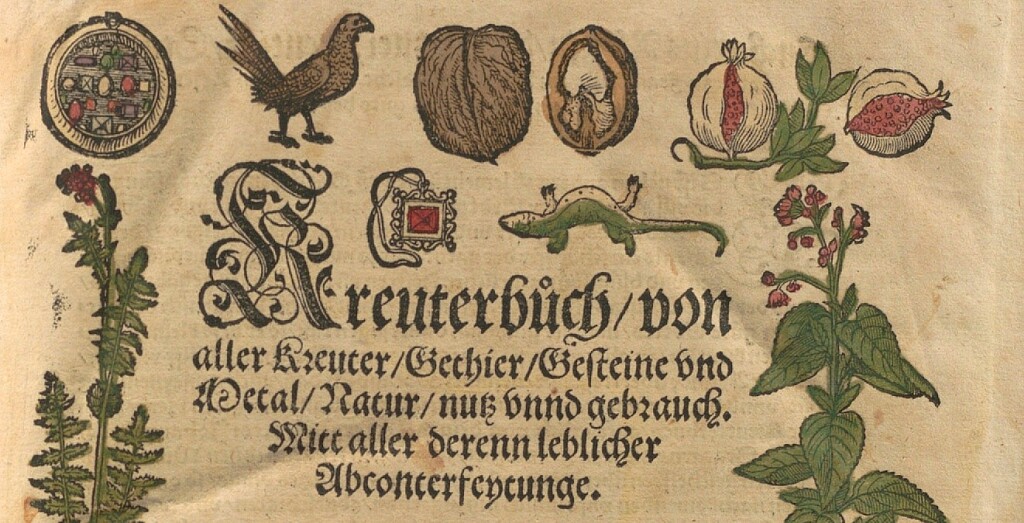 Kreuterbůch/von
aller Kreuter/Gethier/Gesteine vnd
Metal/Natur/nutz vnnd gebrauch.
Mitt aller derenn leblicher
Abconterfeytunge.